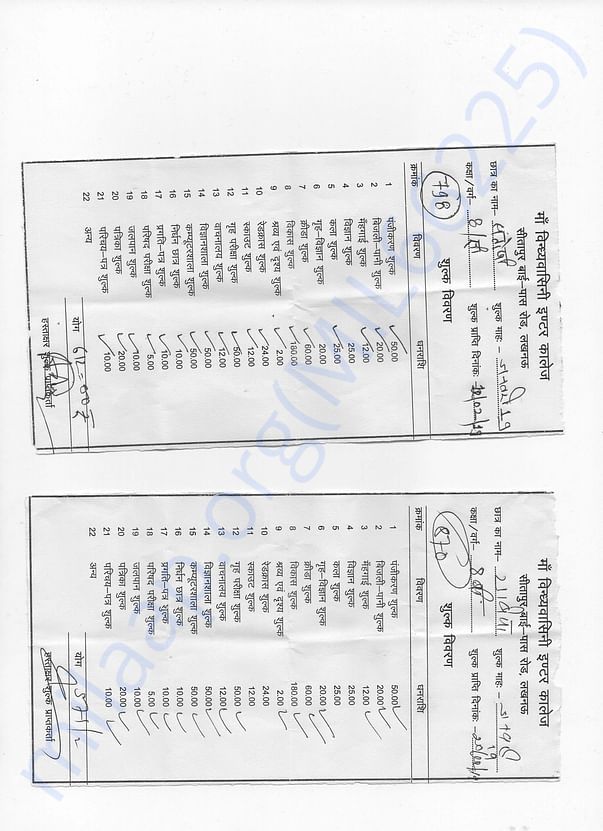 माँ विन्ध्यवासिनी इण्टर कालेज
सीतापुर बाई-पास रोड, लखनऊ
छात्र का नाम- शुल्क माह:- जनवरी 19
कक्षा/वर्ग- 8/सी शुल्क प्राप्ति दिनांक:
798 शुल्क विवरण
क्रमांक विवरण धनराशि
1 पंजीकरण शुल्क 50.00
2 बिजली-पानी शुल्क 20.00
3 मँहगाई शुल्क 12.00
4 विज्ञान शुल्क 25.00
5 कला शुल्क 25.00
6 गृह-विज्ञान शुल्क 20.00
7 क्रीडा शुल्क 60.00
8 विकास शुल्क 180.00
9 श्रव्य एवं दृश्य शुल्क 2.00
10 रेडक्रास शुल्क 24.00
11 स्काउट शुल्क 12.00
12 गृह परीक्षा शुल्क 50.00
13 वाचनालय शुल्क 12.00
14 विज्ञानशाला शुल्क 50.00
15 कम्प्यूटरशाला शुल्क 50.00
16 निर्धन छात्र शुल्क 10.00
17 प्रगति-पत्र शुल्क 10.00
18 परिषद परीक्षा शुल्क 5.00
19 जलपान शुल्क 10.00
20 पत्रिका शुल्क 20.00
21 परिचय-पत्र शुल्क 10.00
22 अन्य
योग 612=00
हस्ताक्षर शुल्क प्राप्तकर्ता
माँ विन्ध्यवासिनी इण्टर कालेज
सीतापुर बाई-पास रोड, लखनऊ
छात्र का नाम- शुल्क माह:-
कक्षा/वर्ग- 8 शुल्क प्राप्ति दिनांक:
870 शुल्क विवरण
क्रमांक विवरण धनराशि
1 पंजीकरण शुल्क 50.00
2 बिजली-पानी शुल्क 20.00
3 मँहगाई शुल्क 12.00
4 विज्ञान शुल्क 25.00
5 कला शुल्क 25.00
6 गृह-विज्ञान शुल्क 20.00
7 क्रीडा शुल्क 60.00
8 विकास शुल्क 180.00
9 श्रव्य एवं दृश्य शुल्क 2.00
10 रेडक्रास शुल्क 24.00
11 स्काउट शुल्क 12.00
12 गृह परीक्षा शुल्क 50.00
13 वाचनालय शुल्क 12.00
14 विज्ञानशाला शुल्क 50.00
15 कम्प्यूटरशाला शुल्क 50.00
16 निर्धन छात्र शुल्क 10.00
17 प्रगति-पत्र शुल्क 10.00
18 परिषद परीक्षा शुल्क 5.00
19 जलपान शुल्क 10.00
20 पत्रिका शुल्क 20.00
21 परिचय-पत्र शुल्क 10.00
22 अन्य
योग
हस्ताक्षर शुल्क प्राप्तकर्ता